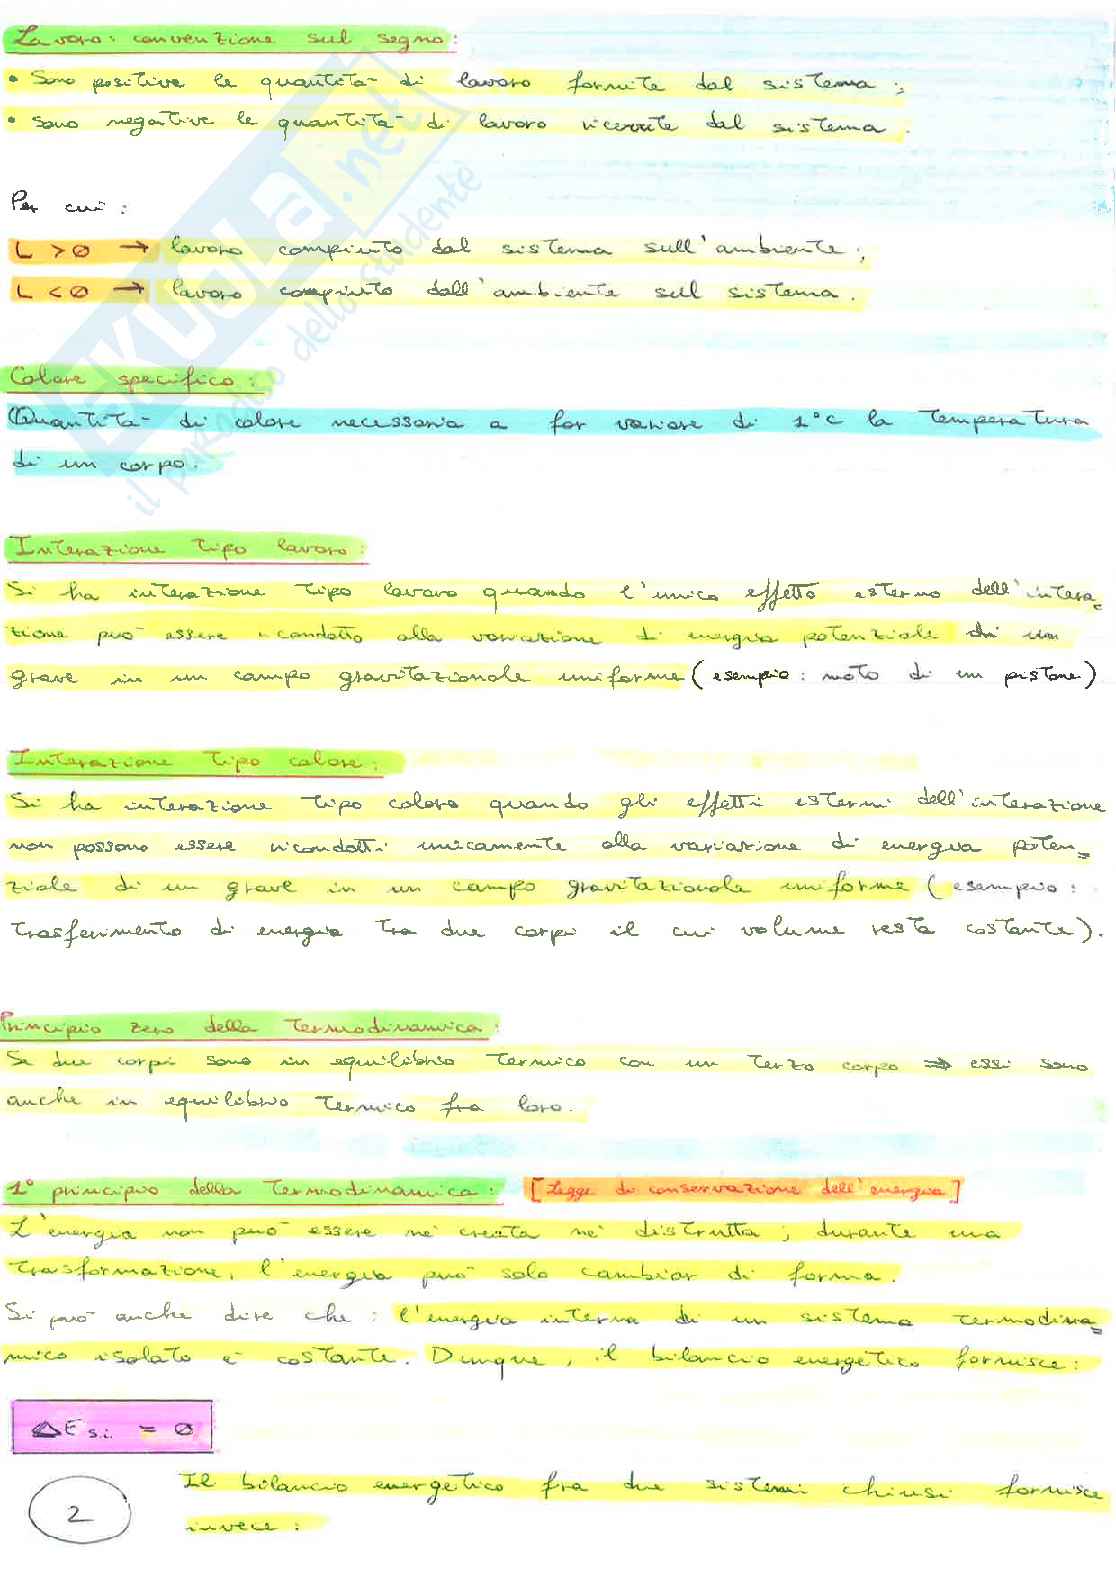 Lavoro: convenzione sul segno:
• Sono positive le quantità di lavoro fornite dal sistema;
• Sono negative le quantità di lavoro ricevute dal sistema.
Per cui:
L > 0 → lavoro compiuto dal sistema sull'ambiente;
L < 0 → lavoro compiuto dall'ambiente sul sistema.
Calore specifico:
Quantità di calore necessaria a far variare di 1°C la temperatura
di un corpo.
Interazione tipo lavoro:
Si ha interazione tipo lavoro quando l'unico effetto esterno dell'intera=
zione può essere ricondotto alla variazione di energia potenziale di un
grave in un campo gravitazionale uniforme (esempio: moto di un pistone)
Interazione tipo calore:
Si ha interazione tipo calore quando gli effetti esterni dell'interazione
non possono essere ricondotti unicamente alla variazione di energia poten=
ziale di un grave in un campo gravitazionale uniforme (esempio:
trasferimento di energia tra due corpi il cui volume resta costante).
Principio zero della termodinamica:
Se due corpi sono in equilibrio termico con un terzo corpo ⇒ essi sono
anche in equilibrio termico fra loro.
1° principio della termodinamica: [Legge di conservazione dell'energia]
L'energia non può essere né creata né distrutta; durante una
trasformazione, l'energia può solo cambiar di forma.
Si può anche dire che: l'energia interna di un sistema termodina=
mico isolato è costante. Dunque, il bilancio energetico fornisce:
ΔE s.i. = 0
Il bilancio energetico fra due sistemi chiusi fornisce
invece:
2
SKUOLA.net
il paradiso dello studente